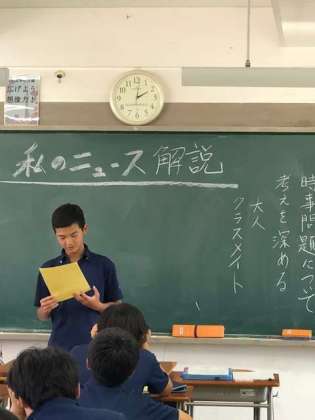 私のニュース解説
時事問題について
考えを深める
大人
クラスメイト